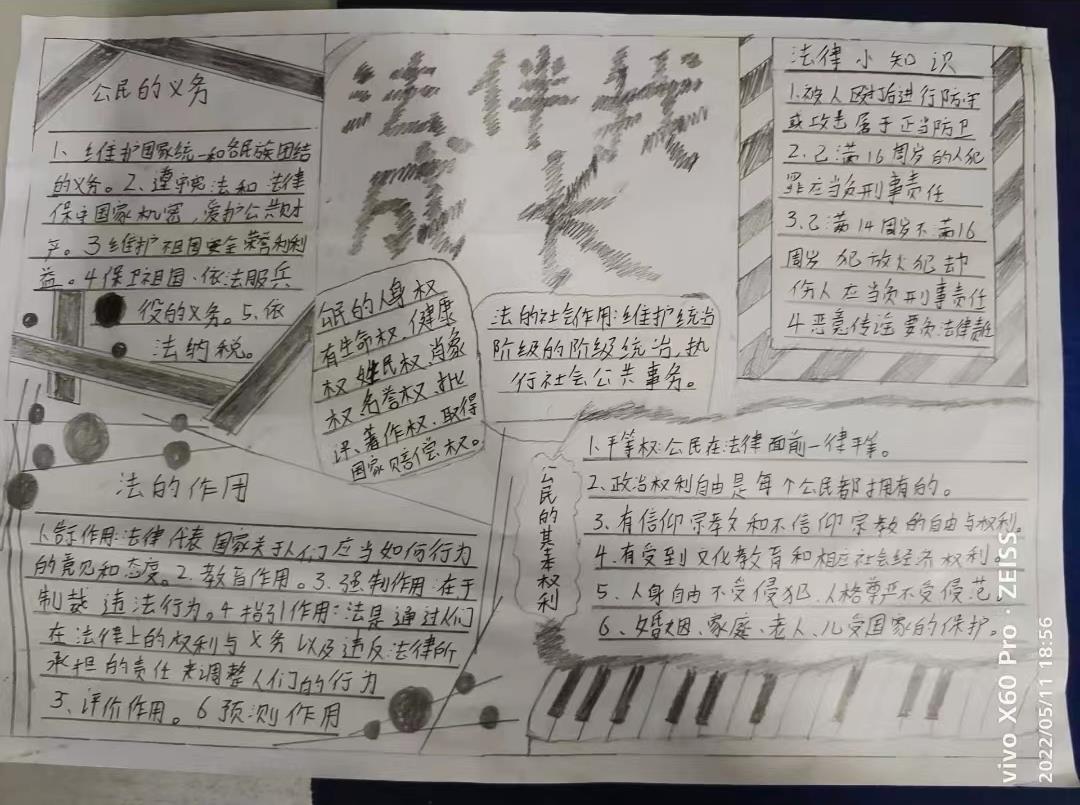 公民的义务
1、维护国家统一和各民族团结
的义务。2、遵守宪法和法律
保守国家机密,爱护公共财
产。3维护祖国安全荣誉和利
益。4保卫祖国、依法服兵
役的义务。5、依
法纳税。
法伴我
成长
法律小知识
1.被人殴打后进行防守
或攻击属于正当防卫
2.已满16周岁的人犯
罪应当负刑事责任
3.已满14周岁不满16
周岁犯放火犯劫
伤人应当负刑事责任
4恶意传谣要负法律责任
公民的人身权
有生命权、健康
权姓民权、肖象
权、名誉权、批
评、著作权、取得
国家赔偿权。
法的社会作用:维护统治
阶级的阶级统治,执
行社会公共事务。
法的作用
1.告示作用:法律代表国家关于人们应当如何行为
的意见和态度。2.教育作用。3.强制作用:在于
制裁违法行为。4指引作用:法是通过人们
在法律上的权利与义务以及违反法律所
承担的责任来调整人们的行为
5、评价作用。6预测作用
公民的其本权利
1、平等权:公民在法律面前一律平等。
2、政治权利自由是每个公民都拥有的。
3、有信仰宗教和不信仰宗教的自由与权利。
4.有受到文化教育和相应社会经济权利。
5、人身自由不受侵犯、人格尊严不受侵犯
6、婚姻、家庭、老人、儿受国家的保护。
vivo X60 Pro · ZEISS
2022/05/11 18:56